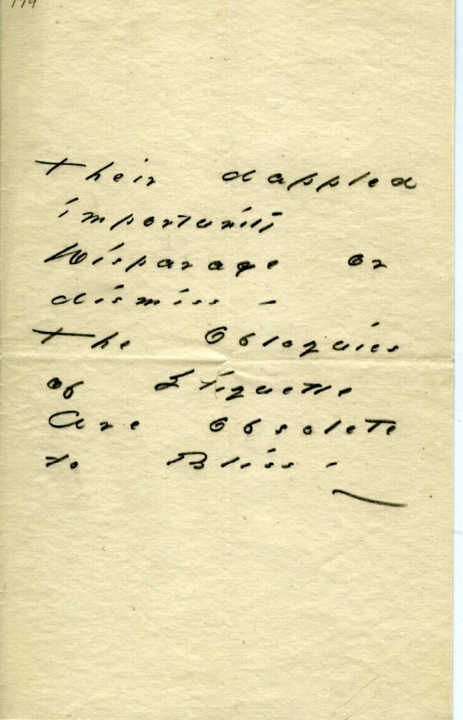 174
Their dappled
importunity
Disparage or
dismiss –
The Obloquies
of Etiquette
Are obsolete
to Bliss –